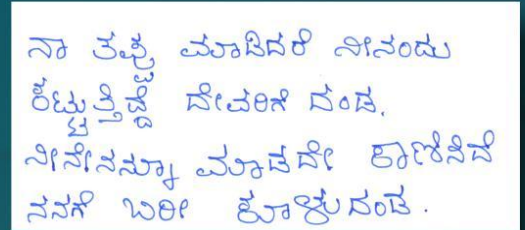 ನಾ ತಪ್ಪು ಮಾಡಿದರೆ ನೀನಂದು
ಕಟ್ಟುತ್ತಿದ್ದೆ ದೇವರಿಗೆ ದಂಡ.
ನೀನೇನನ್ನೂ ಮಾಡದೇ ಕಾಣಿಸಿದೆ
ನನಗೆ ಬರೀ ಕೂಳುದಂಡ.